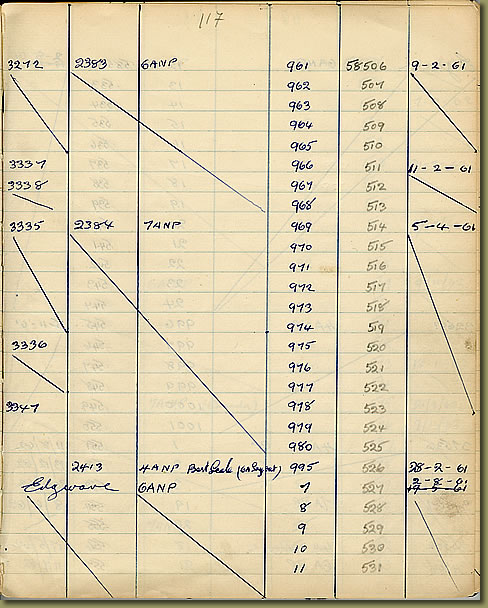 117
3272 2383 6ANP 961 58506 9-2-61
962 507
963 508
964 509
965 510
3337 966 511 11-2-61
3338 967 512
968 513
3335 2384 7ANP 969 514 5-4-61
970 515
971 516
972 517
973 518
974 519
3336 975 520
976 521
977 522
3347 978 523
979 524
980 525
2413 4ANP 995 526 28-2-61
2-8-61
Edgware 6ANP 7 527
8 528
9 529
10 530
11 531